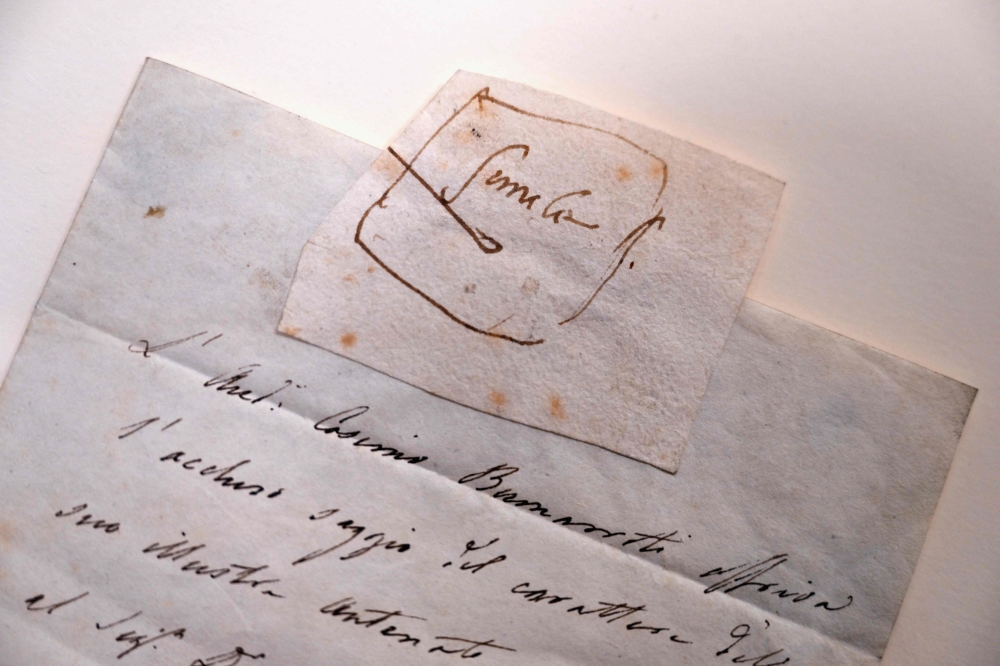 simile
L' Aud.e Cosimo Buonarroti offriva
l'accluso saggio del carattere del
suo illustre antenato
al Sigr D